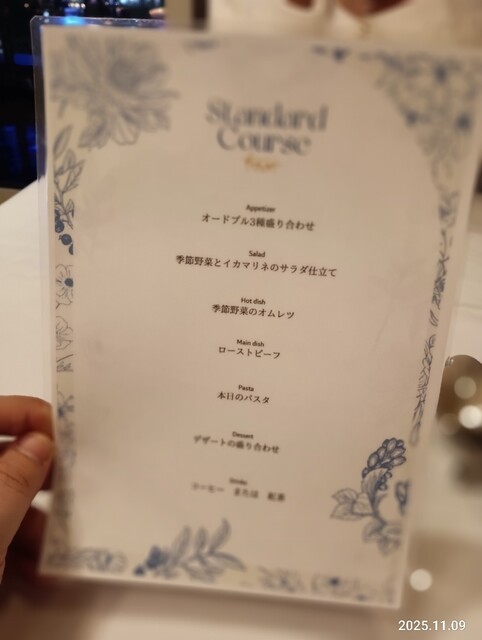 Standard
Course
Appetizer
オードブル3種盛り合わせ
Salad
季節野菜とイカマリネのサラダ仕立て
Hot dish
季節野菜のオムレツ
Main dish
ローストビーフ
Pasta
本日のパスタ
Dessert
デザートの盛り合わせ
Drinks
コーヒー または 紅茶
2025.11.09